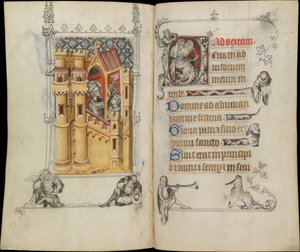 Ad sextam.
Deus in ad
iutorium
meum in
tende.
Domine ad adiuvan
dum me festina.
Gloria patri et filio et
spiritui sancto.
Sicut erat in principi
o et nunc et semper et in secu